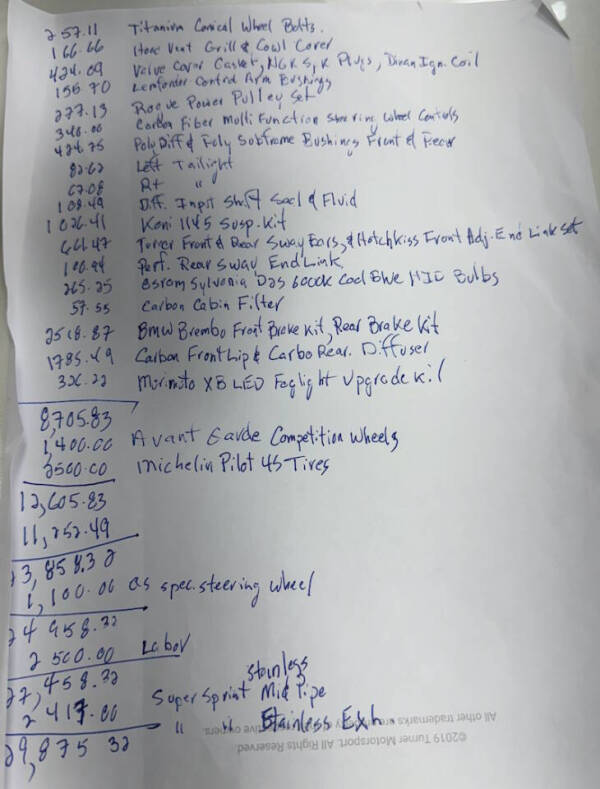 257.11 Titanium Conical Wheel Bolts.
166.66 Vent Grill & Cowl Cover
424.09 Valve Cover Gasket, NGK S.K Plugs, Dinan Ign. Coil
155.70 Lemforder Control Arm Bushings
277.13 Rogue Power Pulley Set
346.00 Carbon Fiber Molti Function Steering Wheel Controls
424.75 Poly Diff & Poly Subframe Bushings Front & Rear
82.62 Left Tailight
67.08 Rt "
108.49 Diff. Input Shaft Seal & Fluid
1026.41 Koni 1145 Susp. Kit
661.47 Turner Front & Rear Sway Bars, & Hotchkiss Front Adj. End Link Set
106.94 Perf. Rear Sway End Link
265.25 Osram Sylvania D2S 6000K Cool Blue HID Bulbs
57.55 Carbon Cabin Filter
2518.87 BMW Brembo Front Brake Kit, Rear Brake Kit
1785.49 Carbon Front Lip & Carbo Rear. Diffuser
326.22 Morimoto XB LED Foglight Upgrade Kit
8,705.83
1,400.00 Avant Garde Competition Wheels
2500.00 Michelin Pilot 4S Tires
12,605.83
11,252.49
23,858.32
1,100.00 as spec. steering wheel
24 958.32
2 500.00 Labor
27,458.32
Stainless
2 417.00 Super Sprint Mid Pipe
" " Stainless Exh.
29,875 32
©2019 Turner Motorsport. All Rights Reserved
All other trademarks are property of their respective owners